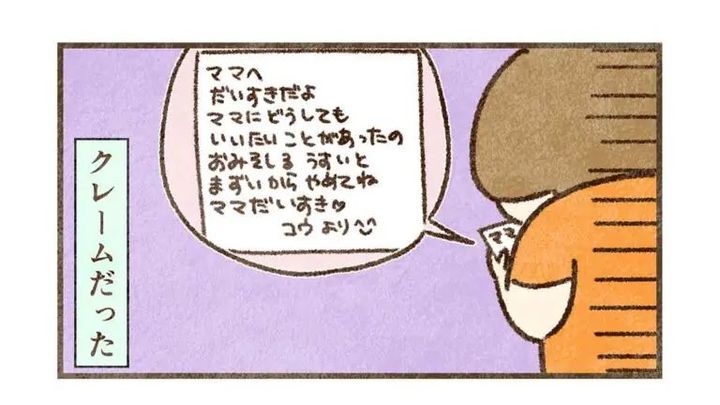 ママへ
だいすきだよ
ママにどうしても
いいたいことがあったの
おみそしる うすいと
まずいから やめてね
ママだいすき♡
コウより
ママへ
クレームだった